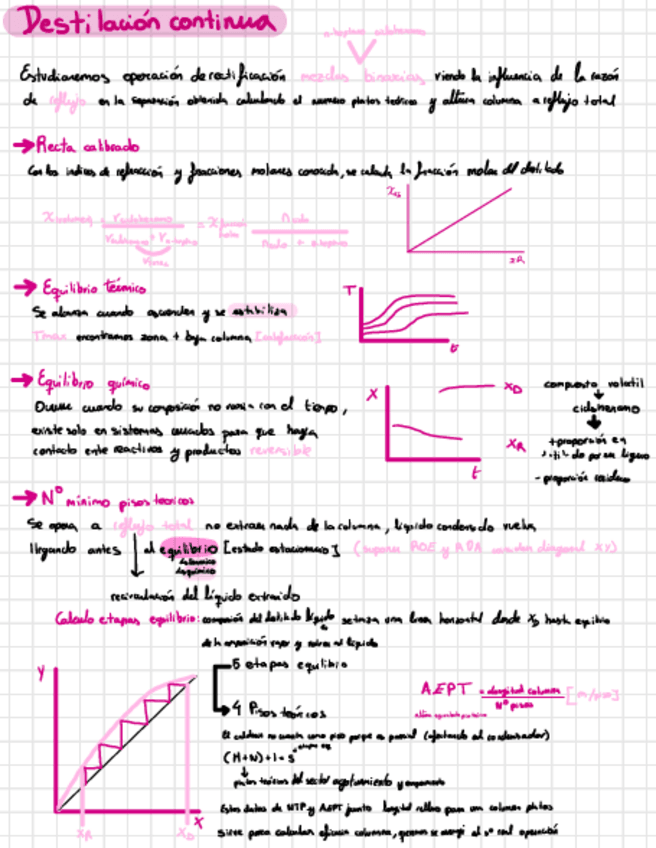 Destilación continua
n-heptano ciclohexano
Estudiaremos operación de rectificación mezclas binarias viendo la influencia de la razón
de reflujo en la separación obtenida calculando el número platos teóricos y altura columna a reflujo total
→ Recta calibrado
Con los índices de refracción y fracciones molares conocida, se calcula la fracción molar del destilado
X volumen = V ciclohexano = X
V ciclohexano + V n-heptano
n ciclo
n ciclo + n heptano
xR
→ Equilibrio térmico
Se alcanza cuando ascienden y se estabiliza
T
Tmax encontramos zona + baja columna [calefacción]
t
→ Equilibrio químico
Ocurre cuando su composición no varía con el tiempo,
existe solo en sistemas cerrados para que haya
contacto ente reactivos y productos reversible
X
xD
xR
t
compuesto volatil
ciclohexano
+ proporción en
- proporción residuo
→ Nº mínimo pisos teoricos
Se opera a reflujo total no extraen nada de la columna, líquido condensado vuelve
llegando antes al equilibrio [estado estacionario] (suponer ROE y ROA coinciden diagonal xy)
térmico
químico
recirculación del líquido extraido
Calculo etapas equilibrio: composición del destilado líquido se traza una linea horizontal desde xD hasta equilibrio
de la composición vapor y
5 etapas equlibrio
4 Pisos teóricos
AEPT = longitud columna / Nº pisos [m/piso]
El calderín no cuenta como piso porque es parcial (afectando al condensador)
(M+N)+1=5
pisos teóricos del sector agotamiento y
Estos datos de NTP y AEPT junto longitud relleno para un columna platos
sirve para calcular eficacia columna,
y
x
xR
xD